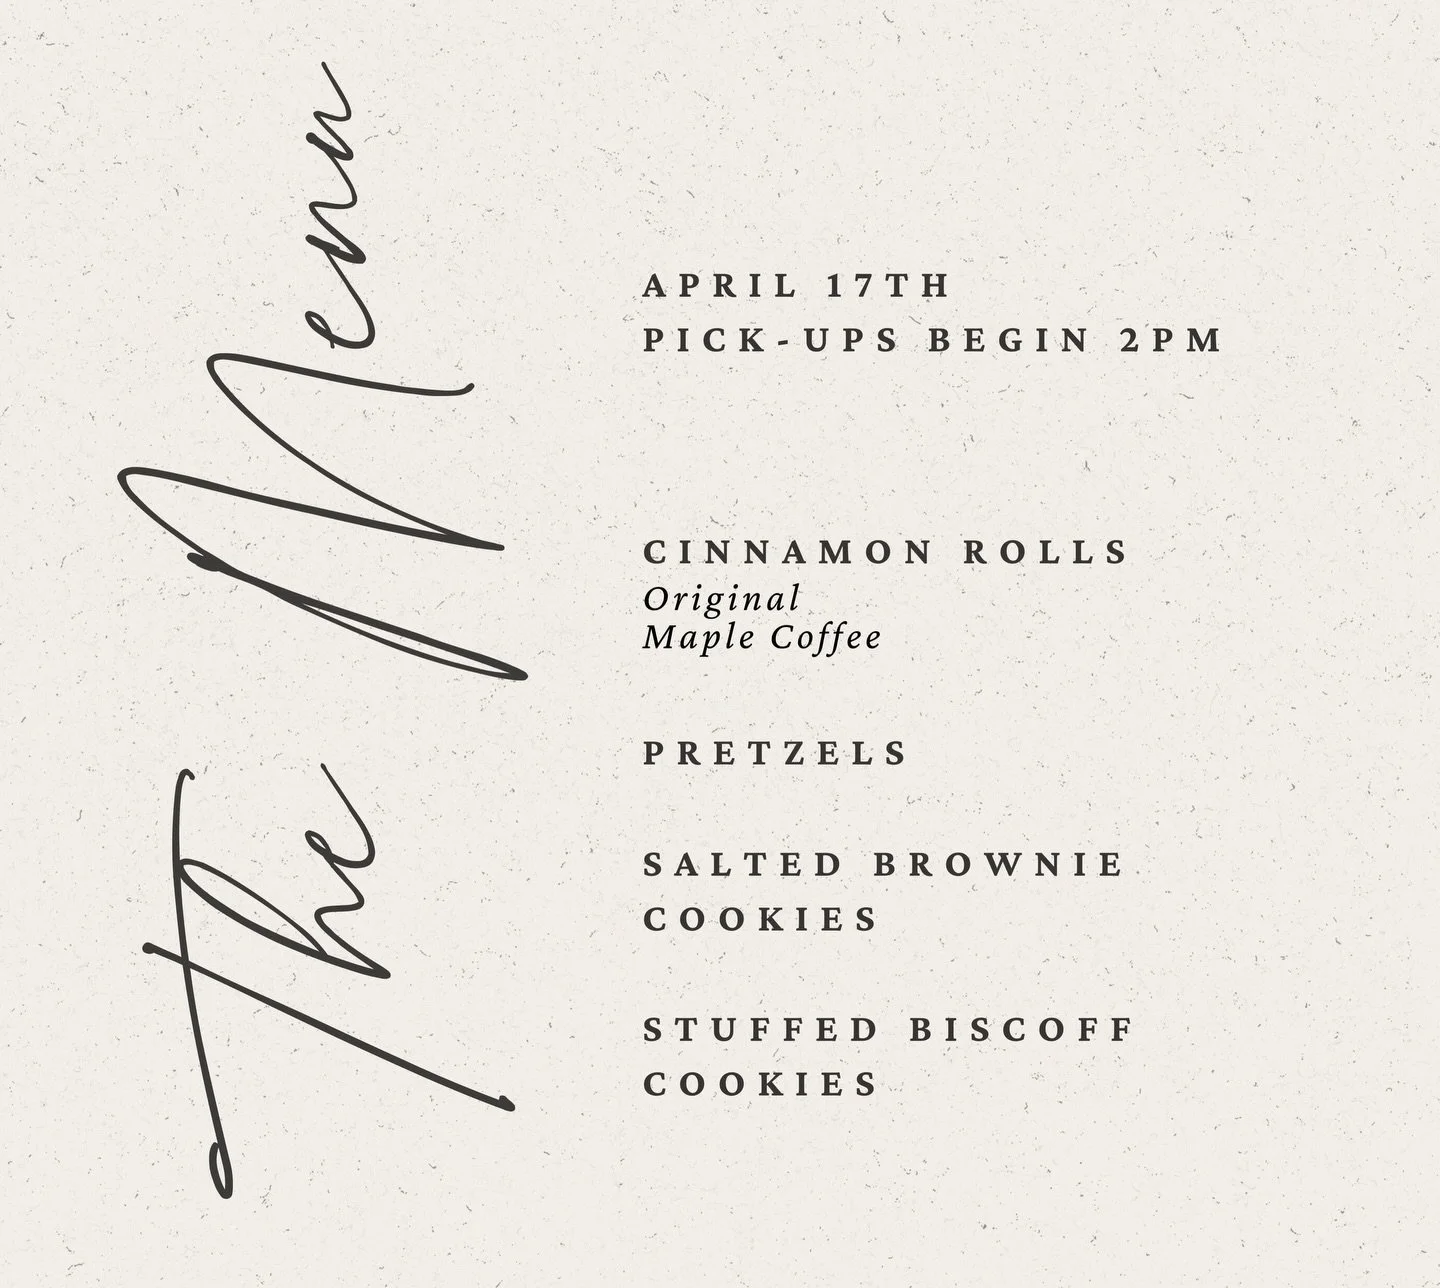 The Menu
APRIL 17TH
PICK-UPS BEGIN 2PM
CINNAMON ROLLS
Original
Maple Coffee
PRETZELS
SALTED BROWNIE
COOKIES
STUFFED BISCOFF
COOKIES